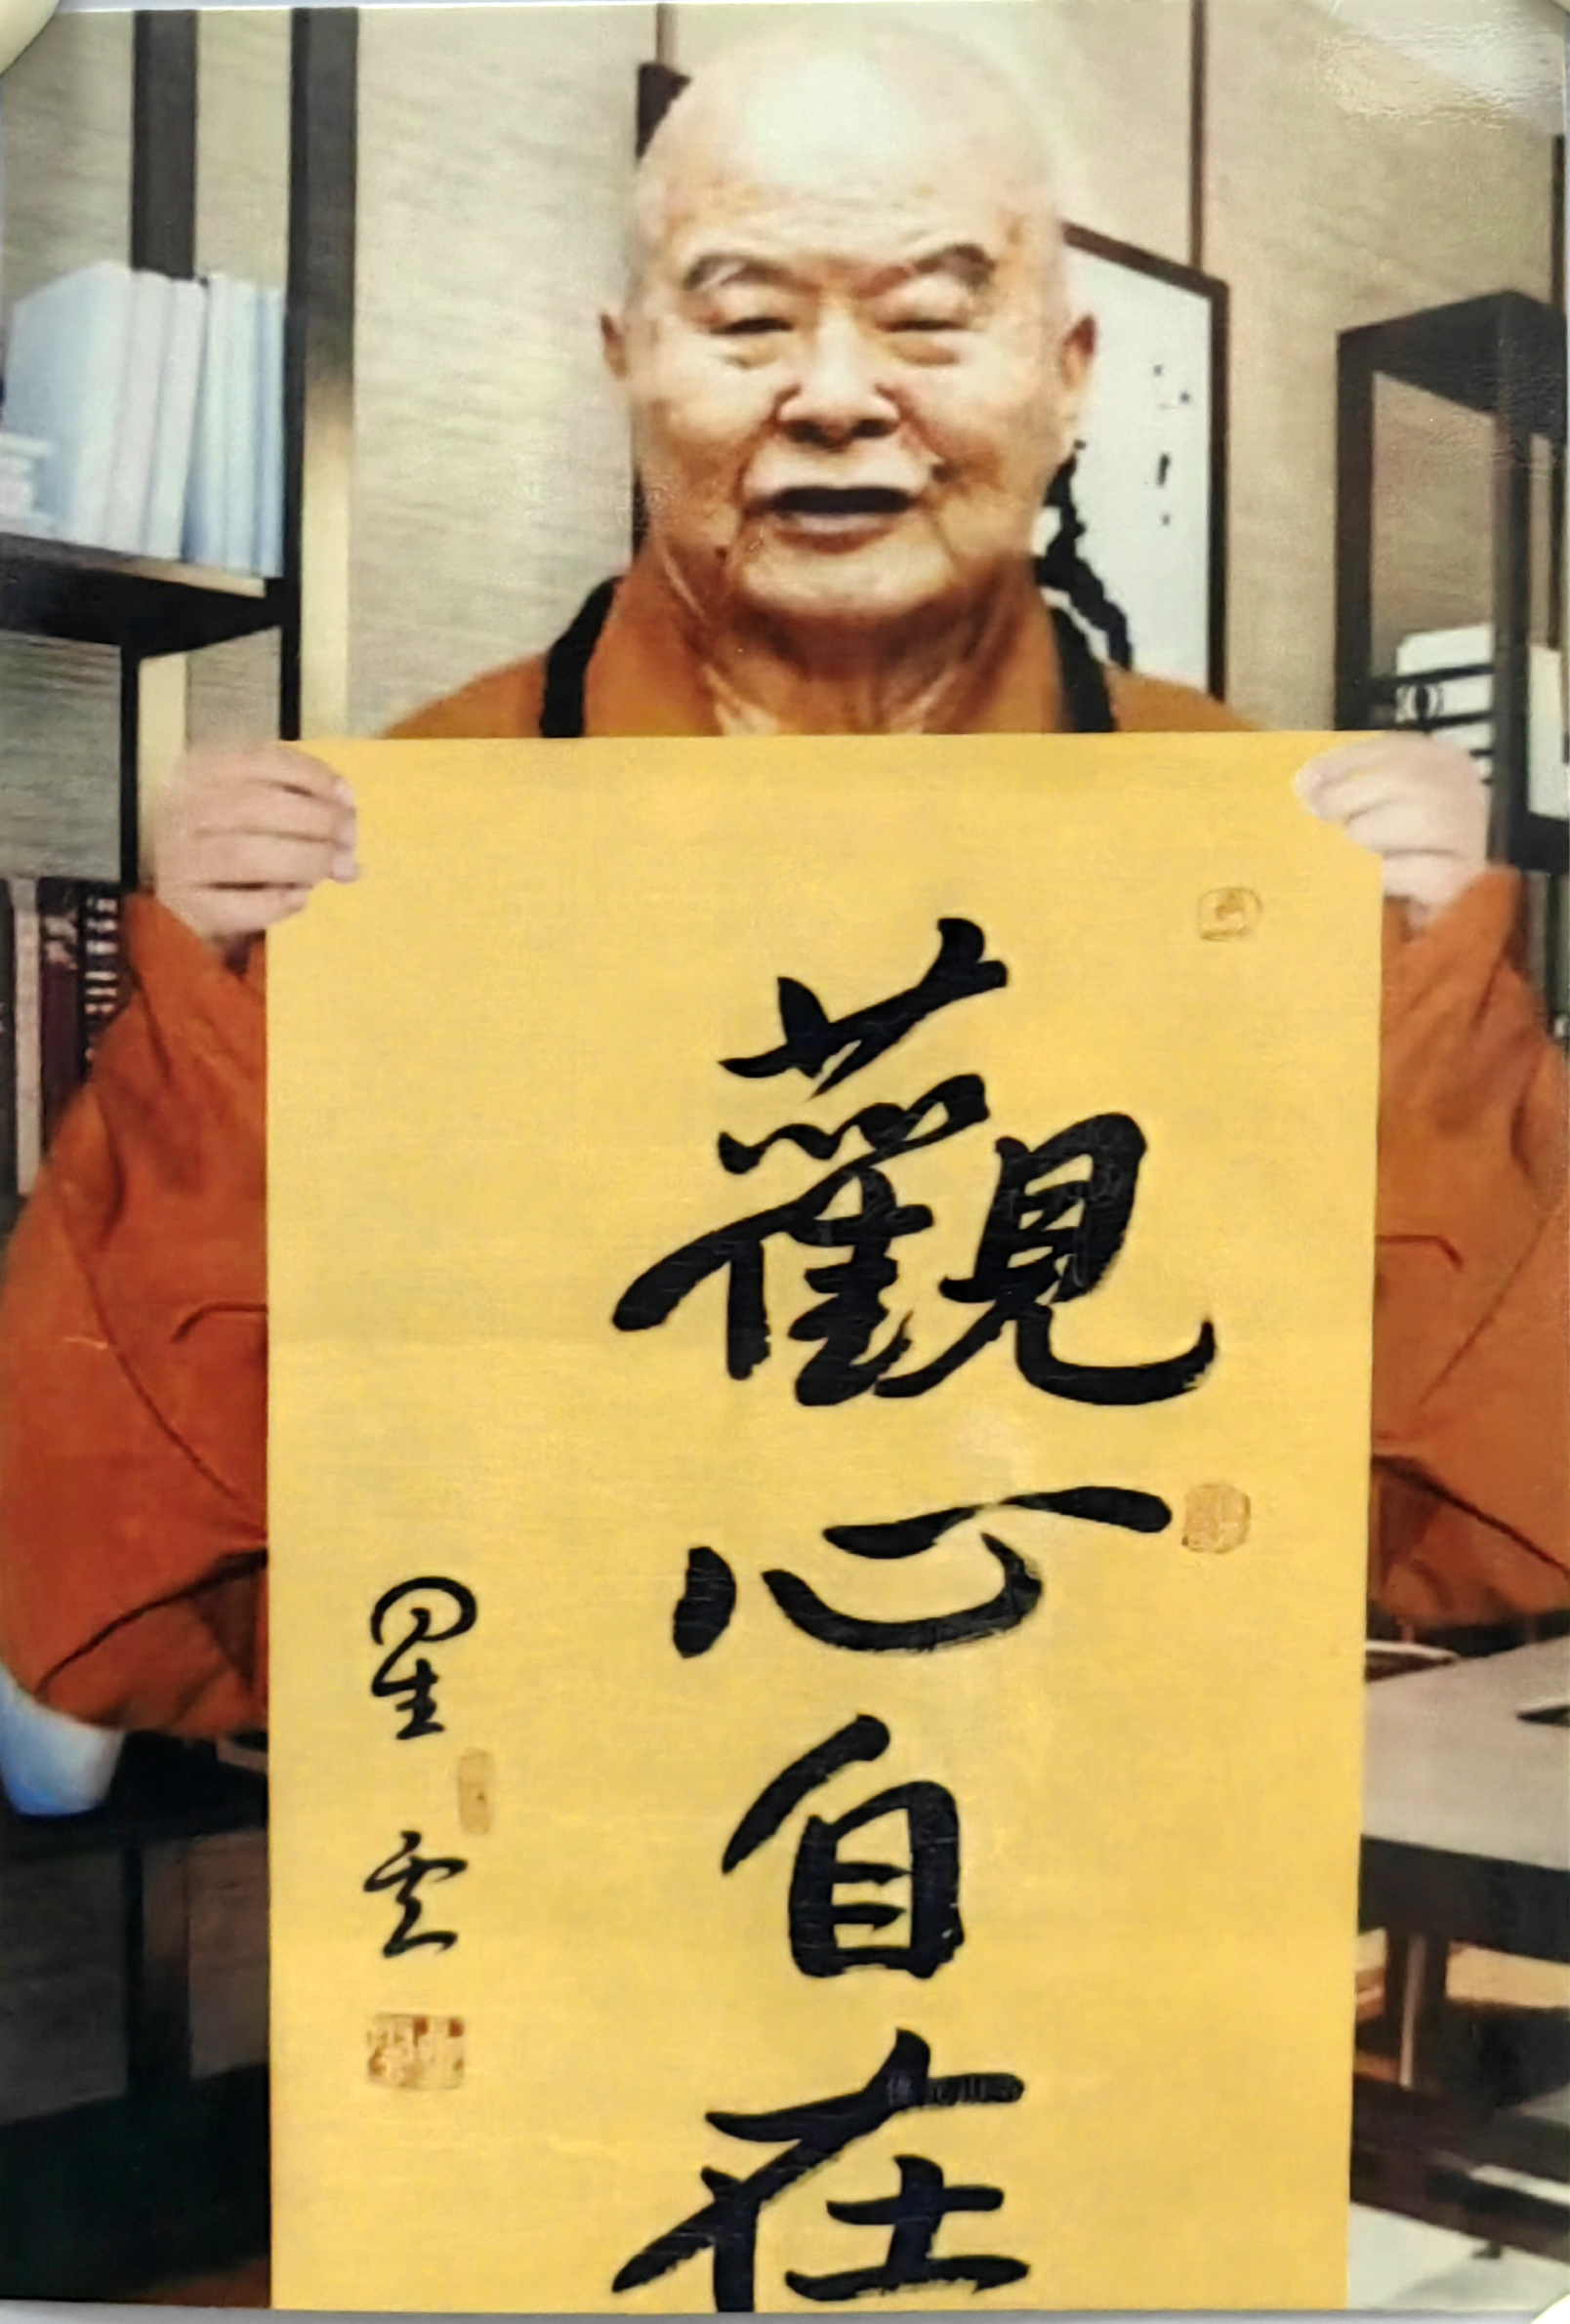 觀心自在
星雲